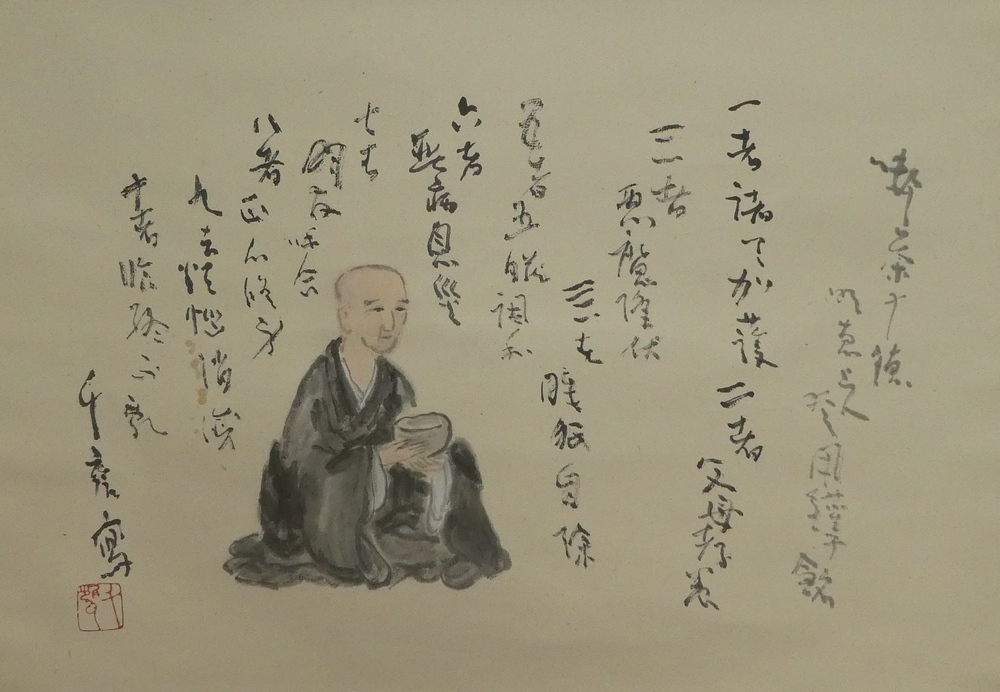 喫茶十徳
明恵上人
用鑵子銘
一者諸天加護 二者
父母孝養
三者
悪魔降伏
亖者
睡眠自除
五者五臓調和
六者
無病息災
七者
朋友和合
八者正心修身
九者煩悩消滅
十者臨終不乱
千甕寫
千甕